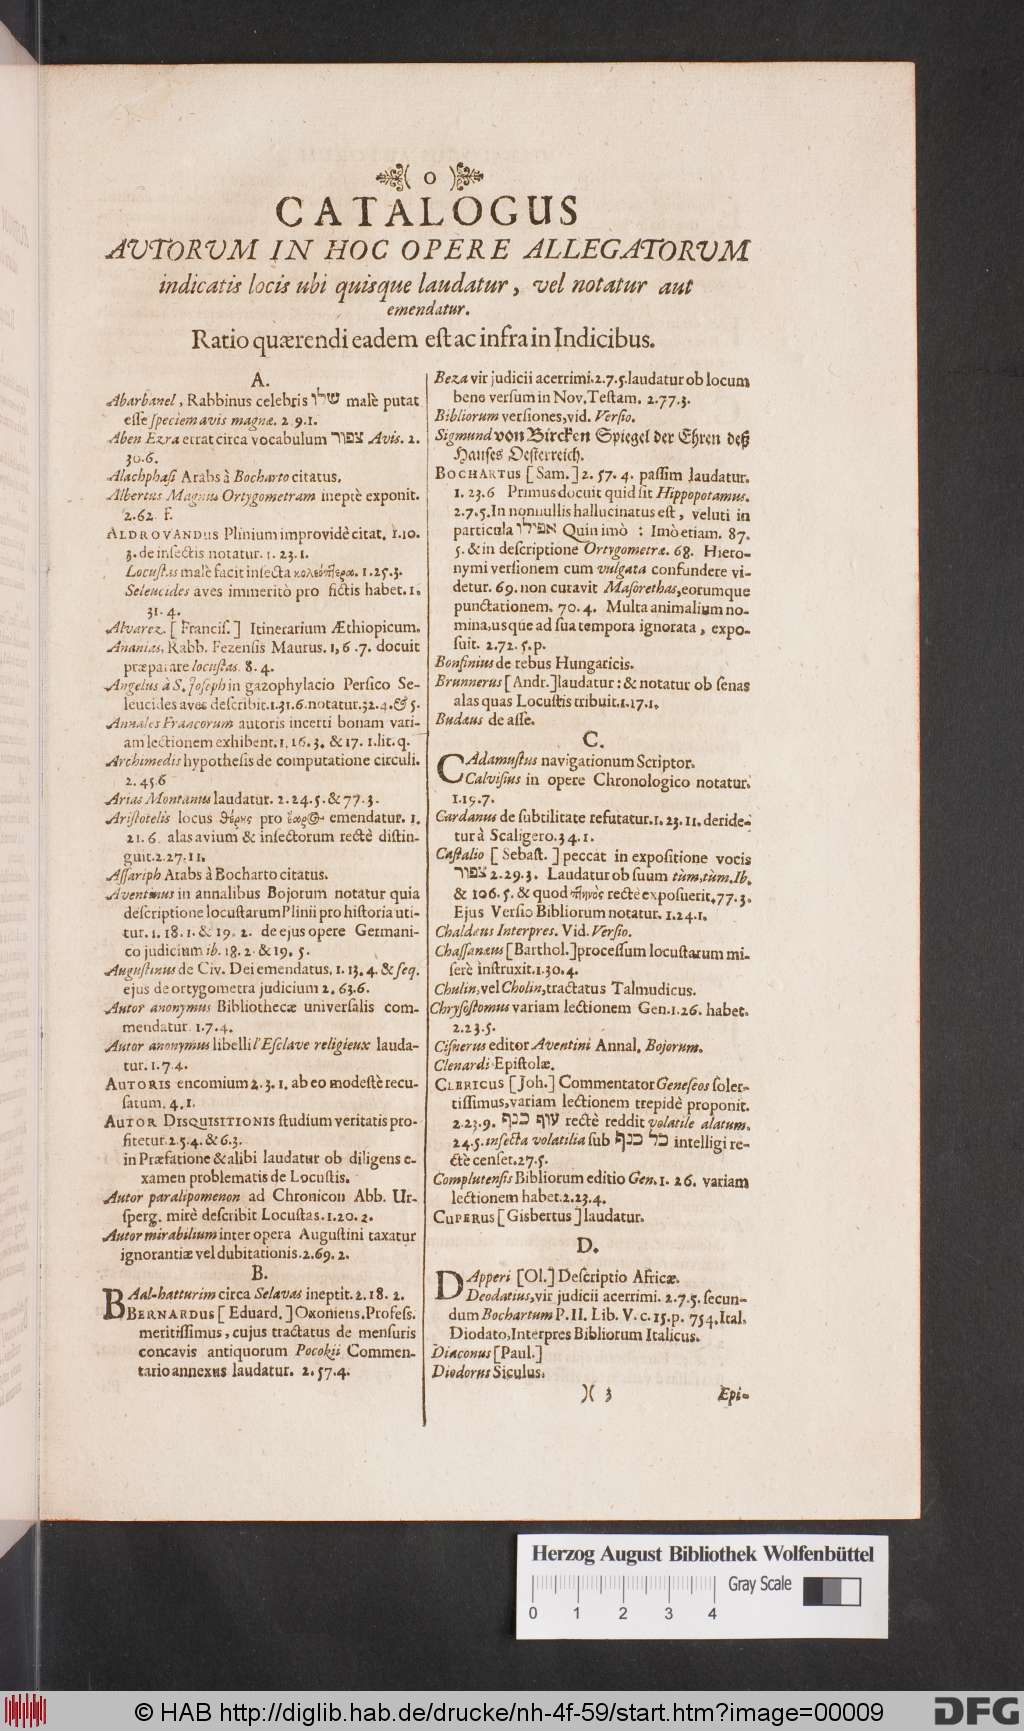 ( o )
CATALOGUS
AVTORVM IN HOC OPERE ALLEGATORVM
indicatis locis ubi quisque laudatur, vel notatur aut
emendatur.
Ratio quærendi eadem est ac infra in Indicibus.
A.
Abarbanel, Rabbinus celebris שלו malè putat
esse speciem avis magnæ. 2.9.1.
Aben Ezra errat circa vocabulum צפור Avis. 2.
30.6.
Alachphasi Arabs à Bocharto citatus.
Albertus Magnus Ortygometram ineptè exponit.
2.62. f.
ALDROVANDUS Plinium improvidè citat. 1.10.
3. de insectis notatur. 1. 23. 1.
Locustas malè facit insecta κολεόπτερα. 1.25.3.
Seleucides aves immeritò pro fictis habet. 1.
31. 4.
Alvarez. [ Francis. ] Itinerarium Æthiopicum.
Ananias, Rabb. Fezensis Maurus. 1, 6. 7. docuit
præparare locustas. 8. 4.
Angelus à S. Joseph in gazophylacio Persico Se-
leucides aves describit. 1.31.6. notatur. 32.4. & 5.
Annales Francorum autoris incerti bonam vari-
am lectionem exhibent. 1. 16. 3. & 17. 1. lit. q.
Archimedis hypothesis de computatione circuli.
2. 45.6
Arias Montanus laudatur. 2. 24. 5. & 77. 3.
Aristotelis locus θέρης pro emendatur. 1.
21. 6. alas avium & insectorum rectè distin-
guit. 2.27.11.
Assariph Arabs à Bocharto citatus.
Aventinus in annalibus Bojorum notatur quia
descriptione locustarum Plinii pro historia uti-
tur. 1. 18. 1. & 19. 2. de ejus opere Germani-
co judicium ib. 18. 2. & 19. 5.
Augustinus de Civ. Dei emendatus. 1. 13. 4. & seq.
ejus de ortygometra judicium 2. 63.6.
Autor anonymus Bibliothecæ universalis com-
mendatur. 1.7.4.
Autor anonymus libelli l'Esclave religieux lauda-
tur. 1. 7. 4.
AUTORIS encomium 2. 3. 1. ab eo modestè recu-
satum. 4. 1.
AUTOR DISQUISITIONIS studium veritatis pro-
fitetur. 2.5.4. & 6.3.
in Præfatione & alibi laudatur ob diligens e-
xamen problematis de Locustis.
Autor paralipomenon ad Chronicon Abb. Ur-
sperg. mirè describit Locustas. 1.20. 2.
Autor mirabilium inter opera Augustini taxatur
ignorantiæ vel dubitationis. 2.69. 2.
B.
BAal-hatturim circa Selavas ineptit. 2. 18. 2.
BERNARDUS [ Eduard. ] Oxoniens. Profess.
meritissimus, cujus tractatus de mensuris
concavis antiquorum Pocokii Commen-
tario annexus laudatur. 2. 57. 4.
Beza vir judicii acerrimi. 2.7.5. laudatur ob locum
bene versum in Nov. Testam. 2.77.3.
Bibliorum versiones, vid. Versio.
Sigmund von Bircken Spiegel der Ehren deß
Hauses Oesterreich.
BOCHARTUS [ Sam. ] 2. 57. 4. passim laudatur.
1. 23.6 Primus docuit quid sit Hippopotamus.
2.7.5. In nonnullis hallucinatus est, veluti in
particula אפילו Quin imò : Imò etiam. 87.
5. & in descriptione Ortygometræ. 68. Hiero-
nymi versionem cum vulgata confundere vi-
detur. 69. non curavit Masorethas, eorumque
punctationem. 70. 4. Multa animalium no-
mina, usque ad sua tempora ignorata, expo-
suit. 2.72. 5. p.
Bonfinius de rebus Hungaricis.
Brunnerus [ Andr. ] laudatur : & notatur ob senas
alas quas Locustis tribuit. 1.17.1.
Budæus de asse.
C.
CAdamustus navigationum Scriptor.
Calvisius in opere Chronologico notatur.
1.19.7.
Cardanus de subtilitate refutatur. 1. 23. 11. deride-
tur à Scaligero. 34. 1.
Castalio [ Sebast. ] peccat in expositione vocis
צפור 2.29.3. Laudatur ob suum tùm, tùm. Ib.
& 106. 5. & quod πτηνὸς rectè exposuerit. 77.3.
Ejus Versio Bibliorum notatur. 1.24.1.
Chaldæus Interpres. Vid. Versio.
Chassanæus [ Barthol. ] processum locustarum mi-
serè instruxit. 1.30.4.
Chulin, vel Cholin, tractatus Talmudicus.
Chrysostomus variam lectionem Gen. 1.26. habet.
2.23.5.
Cisnerus editor Aventini Annal. Bojorum.
Clenardi Epistolæ.
CLERICUS [ Joh. ] Commentator Geneseos soler-
tissimus, variam lectionem trepidè proponit.
2.23.9. עוף כנף rectè reddit volatile alatum.
24.5. insecta volatilia sub כל כנף intelligi re-
ctè censet. 27.5.
Complutensis Bibliorum editio Gen. 1. 26. variam
lectionem habet. 2.23.4.
CUPERUS [ Gisbertus ] laudatur.
D.
DApperi [Ol.] Descriptio Africæ.
Deodatius, vir judicii acerrimi. 2.7.5. secun-
dum Bochartum P. II. Lib. V. c. 15. p. 754. Ital.
Diodato, Interpres Bibliorum Italicus.
Diaconus [Paul.]
Diodorus Siculus.
)( 3 Epi-
Herzog August Bibliothek Wolfenbüttel
Gray Scale
0 1 2 3 4
© HAB http://diglib.hab.de/drucke/nh-4f-59/start.htm?image=00009 DFG